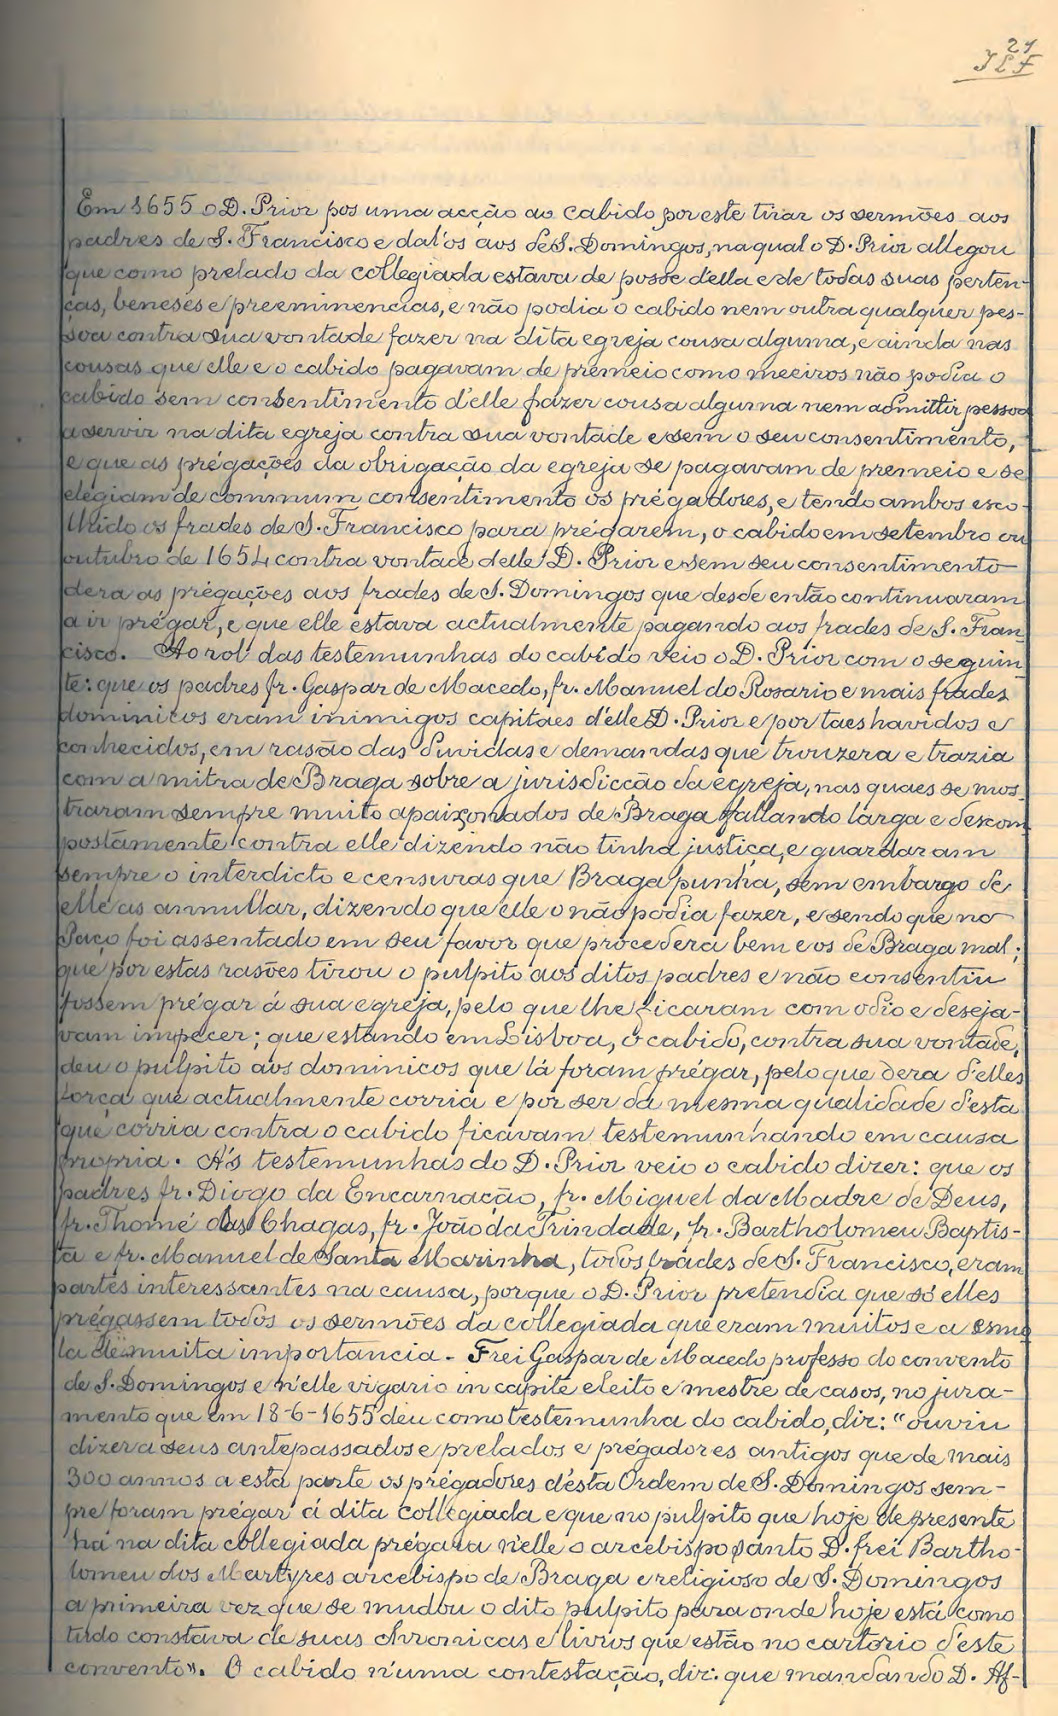 21
JLF
Em 1655 o D. Prior pos uma acção ao Cabido por este tirar os sermões aos
padres de S. Francisco e dal'os aos de S. Domingos, na qual o D. Prior allegou
que como prelado da collegiada estava de posse d'ella e de todas suas perten-
ças, beneses e preeminencias, e não podia o cabido nem outra qualquer pes-
soa contra sua vontade fazer na dita egreja cousa alguma, e ainda nas
cousas que elle e o cabido pagavam de premeio como meeiros não podia o
cabido sem consentimento d'elle fazer cousa alguma nem admittir pessoa
a servir na dita egreja contra sua vontade e sem o seu consentimento,
e que as prégações da obrigação da egreja se pagavam de premeio e se
elegiam de commum consentimento os prégadores, e tendo ambos esco-
lhido os frades de S. Francisco para prégarem, o cabido em setembro ou
outubro de 1654 contra vontade delle D. Prior e sem seu consentimento
dera as prégações aos frades de S. Domingos que desde então continuaram
a ir prégar, e que elle estava actualmente pagando aos frades de S. Fran-
cisco. Ao rol das testemunhas do cabido veio o D. Prior com o seguin-
te: que os padres fr. Gaspar de Macedo, fr. Manuel do Rosario e mais frades
dominicos eram inimigos capitaes d'elle D. Prior e por taes havidos e
conhecidos, em rasão das duvidas e demandas que trouxera e trazia
com a mitra de Braga sobre a jurisdicção da egreja, nas quaes se mos-
traram sempre muito apaixonados de Braga fallando larga e descom-
postamente contra elle dizendo não tinha justiça, e guardaram
sempre o interdicto e censuras que Braga punha, sem embargo de
elle as annullar, dizendo que elle o não podia fazer, e sendo que no
Paço foi assentado em seu favor que procedera bem e os de Braga mal;
que por estas rasões tirou o pulpito aos ditos padres e não consentiu
fossem prégar á sua egreja, pelo que lhe ficaram com odio e deseja-
vam impecer; que estando em Lisboa, o cabido, contra sua vontade,
deu o pulpito aos dominicos que lá foram prégar, pelo que dera d'elles
força que actualmente corria e por ser da mesma qualidade d'esta
que corria contra o cabido ficavam testemunhando em causa
propria. Ás testemunhas do D. Prior veio o cabido dizer: que os
padres fr. Diogo da Encarnação, fr. Miguel da Madre de Deus,
fr. Thomé das Chagas, fr. João da Trindade, fr. Bartholomeu Baptis-
ta e fr. Manuel de Santa Marinha, todos frades de S. Francisco, eram
partes interessantes na causa, porque o D. Prior pretendia que só elles
prégassem todos os sermões da collegiada que eram muitos e a esmo-
la de muita importancia. Frei Gaspar de Macedo professo do convento
de S. Domingos e n'elle vigario in capite eleito e mestre de casos, no jura-
mento que em 18-6-1655 deu como testemunha do cabido, diz: "ouviu
dizer a seus antepassados e prelados e prégadores antigos que de mais
300 annos a esta parte os prégadores d'esta Ordem de S. Domingos sem-
pre foram prégar á dita collegiada e que no pulpito que hoje de presente
há na dita collegiada prégara n'elle o arcebispo santo D. frei Bartho-
lomeu dos Martyres arcebispo de Braga e religioso de S. Domingos
a primeira vez que se mudou o dito pulpito para onde hoje está como
tudo constava de suas chronicas e livros que estão no cartorio d'este
convento". O cabido n'uma contestação, diz: que mandando D. Af-